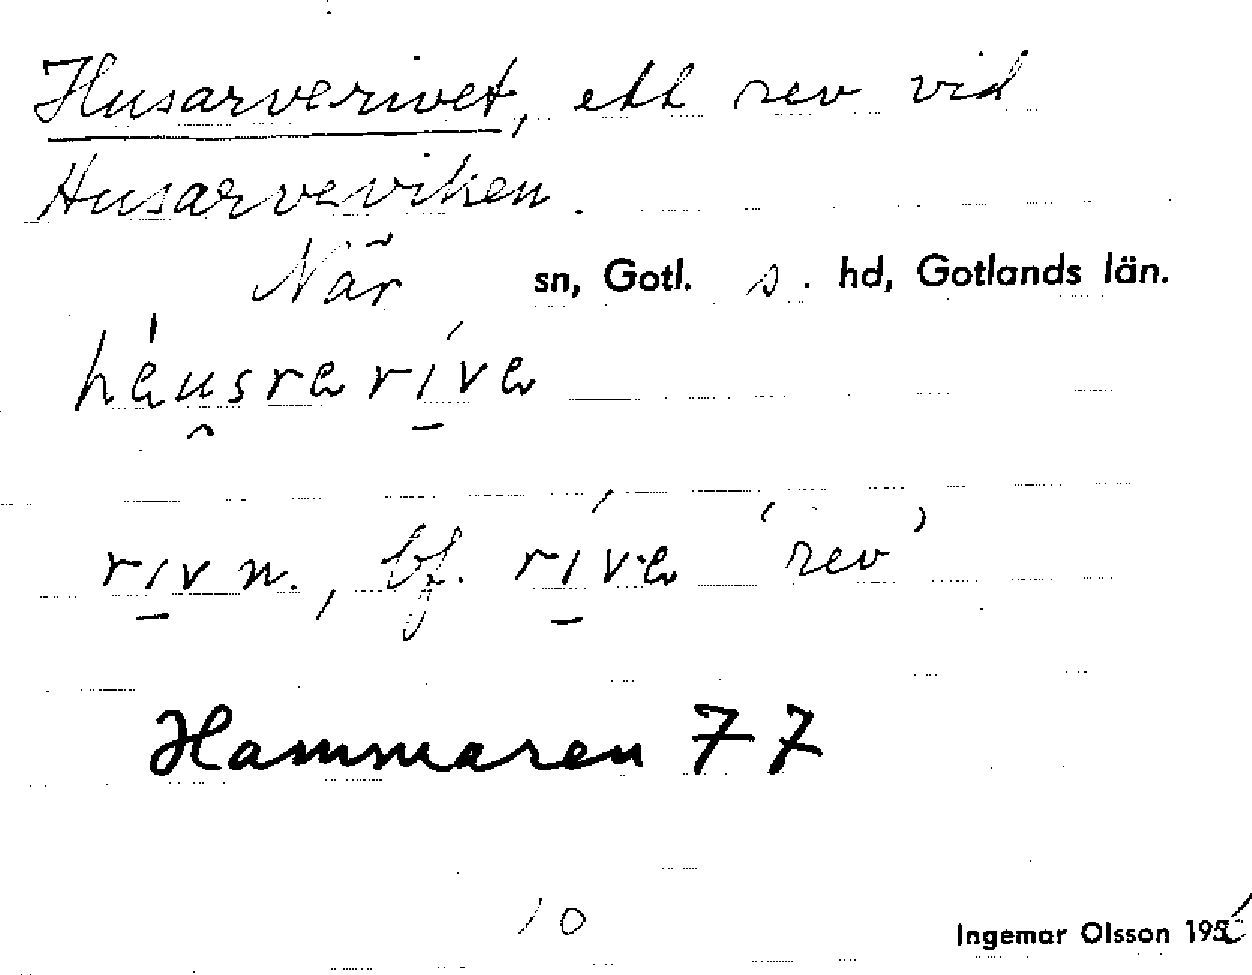 Husarverivet, ett rev vid
Husarveviken.
När sn, Gotl. s. hd, Gotlands län.
háusrarivа
riv n., bf. riva 'rev'
Hammaren 77
10
Ingemar Olsson 195